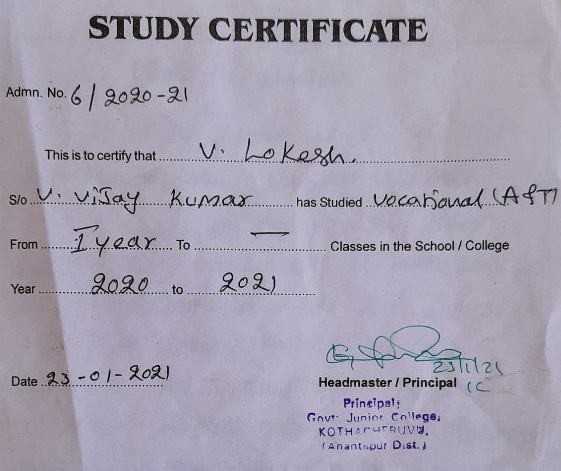 STUDY CERTIFICATE
Admn. No. 6/2020-21
This is to certify that V. Lokesh.
S/o V. Vijay Kumar has Studied vocational (A&T)
From I year To — Classes in the School / College
Year 2020 to 2021
23/1/21
Date 23-01-2021 Headmaster / Principal
Principal;
Govt: Junior College,
KOTHACHERUVU,
(Anantapur Dist.)